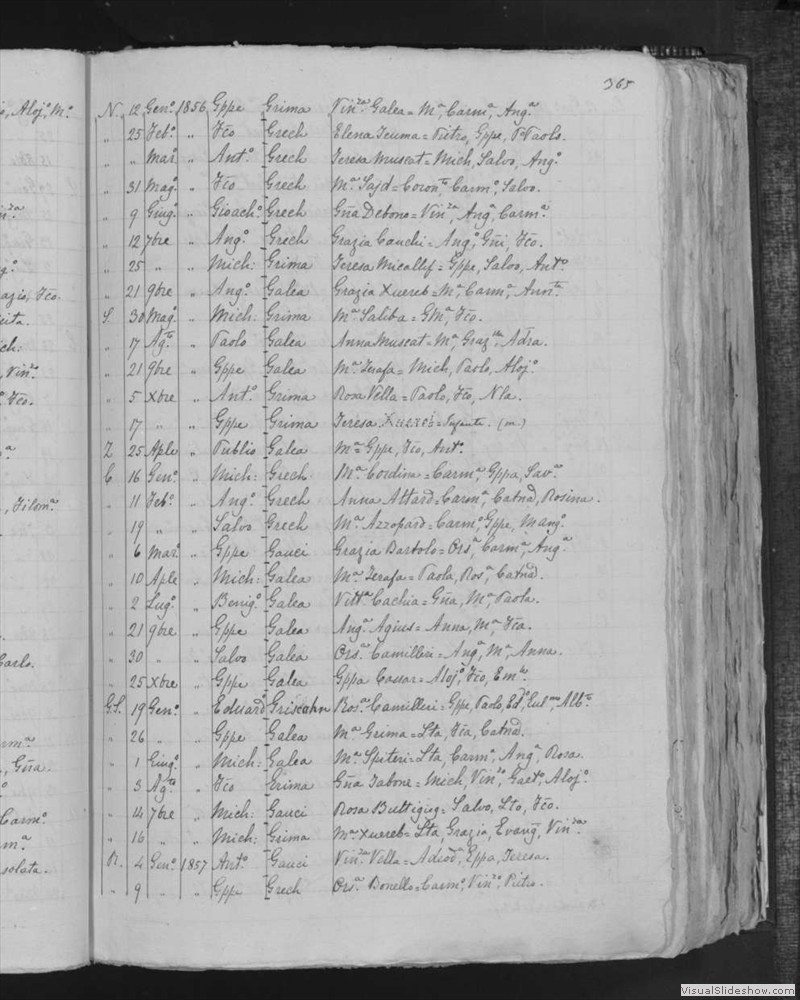 365
o, Aloj.º, M.ª
N. 12 Gen.º 1856 Gppe Grima Vin.za Galea = M.ª, Carm.ª, Ang.ª
" 25 Feb.º " Fco Grech Elena = Pietro, Gppe, P.º Paolo.
" " Mar. " Ant.º Grech Teresa Muscat = Mich, Salvo, Ang.º
" 31 Mag.º " Fco Grech M.ª = Coron.ta, Carm.º, Salvo.
" 9 Giug.º " Gioach.º Grech Gña Debono = Vin.za, Ang.ª, Carm.ª
" 12 7bre " Ang.º Grech Grazia Cauchi = Ang.º, Gñi, Fco.
" 25 " " Mich: Grima Teresa Micallef = Gppe, Salvo, Ant.º
" 21 9bre " Ang.º Galea Grazia Xuereb = M.ª, Carm.ª, Ann.ta
S. 30 Mag.º " Mich: Grima M.ª Saliba = Em.ª, Fco.
" 17 Ag.to " Paolo Galea Anna Muscat = M.ª, Graz.lla, Adra.
" 21 9bre " Gppe Galea M.ª Zerafa = Mich, Paolo, Aloj.º
" 5 Xbre " Ant.º Grima Rosa Vella = Paolo, Fco, Nla.
" 17 " " Gppe Grima Teresa = Infante. (m.)
Z. 25 Aple " Publio Galea M.ª = Gppe, Fco, Ant.º
C. 16 Gen.º " Mich: Grech M.ª Cordina = Carm.ª, Gppa, Sav.ª
" 11 Feb.º " Ang.º Grech Anna Attard = Carm.ª, Catna, Rosina.
" 19 " " Salvo Grech M.ª Azzopard = Carm.º, Gppe, Mang.º
" 6 Mar. " Gppe Gauci Grazia Bartolo = Ors.ª, Carm.ª, Ang.ª
" 10 Aple " Mich: Galea M.ª Zerafa = Paola, Ros.ª, Catna.
" 2 Lug.º " Benig.º Galea Vitt.ª Cachia = Gña, M.ª, Paola.
" 21 9bre " Gppe Galea Ang.ª Agius = Anna, M.ª, Fca.
" 30 " " Salvo Galea Ors.ª Camilleri = Ang.ª, M.ª, Anna.
" 25 Xbre " Gppe Galea Gppa Cassar = Aloj.º, Fco, Em.ª
G.S. 19 Gen.º " Eduard.º Griscahn Ros.ª Camilleri = Gppe, Paolo, Ed.º
" 26 " " Gppe Galea M.ª Grima = Lta, Fca, Catna.
" 1 Giug.º " Mich: Galea M.ª Spiteri = Lta, Carm.ª, Ang.ª, Rosa.
" 3 Ag.to " Fco Grima Gña Tabone = Mich, Vin.zo, Gaet.º, Aloj.º
" 14 7bre " Mich: Gauci Rosa Buttigieg = Salvo, Lto, Fco.
" 16 " " Mich: Grima M.ª Xuereb = Lta, Grazia, Evang, Vin.za
R. 4 Gen.º 1857 Ant.º Gauci Vin.za Vella = Gppa, Teresa.
" 9 " " Gppe Grech Ors.ª Bonello = Carm.º, Vin.zo, Pietro.
VisualSlideshow.com